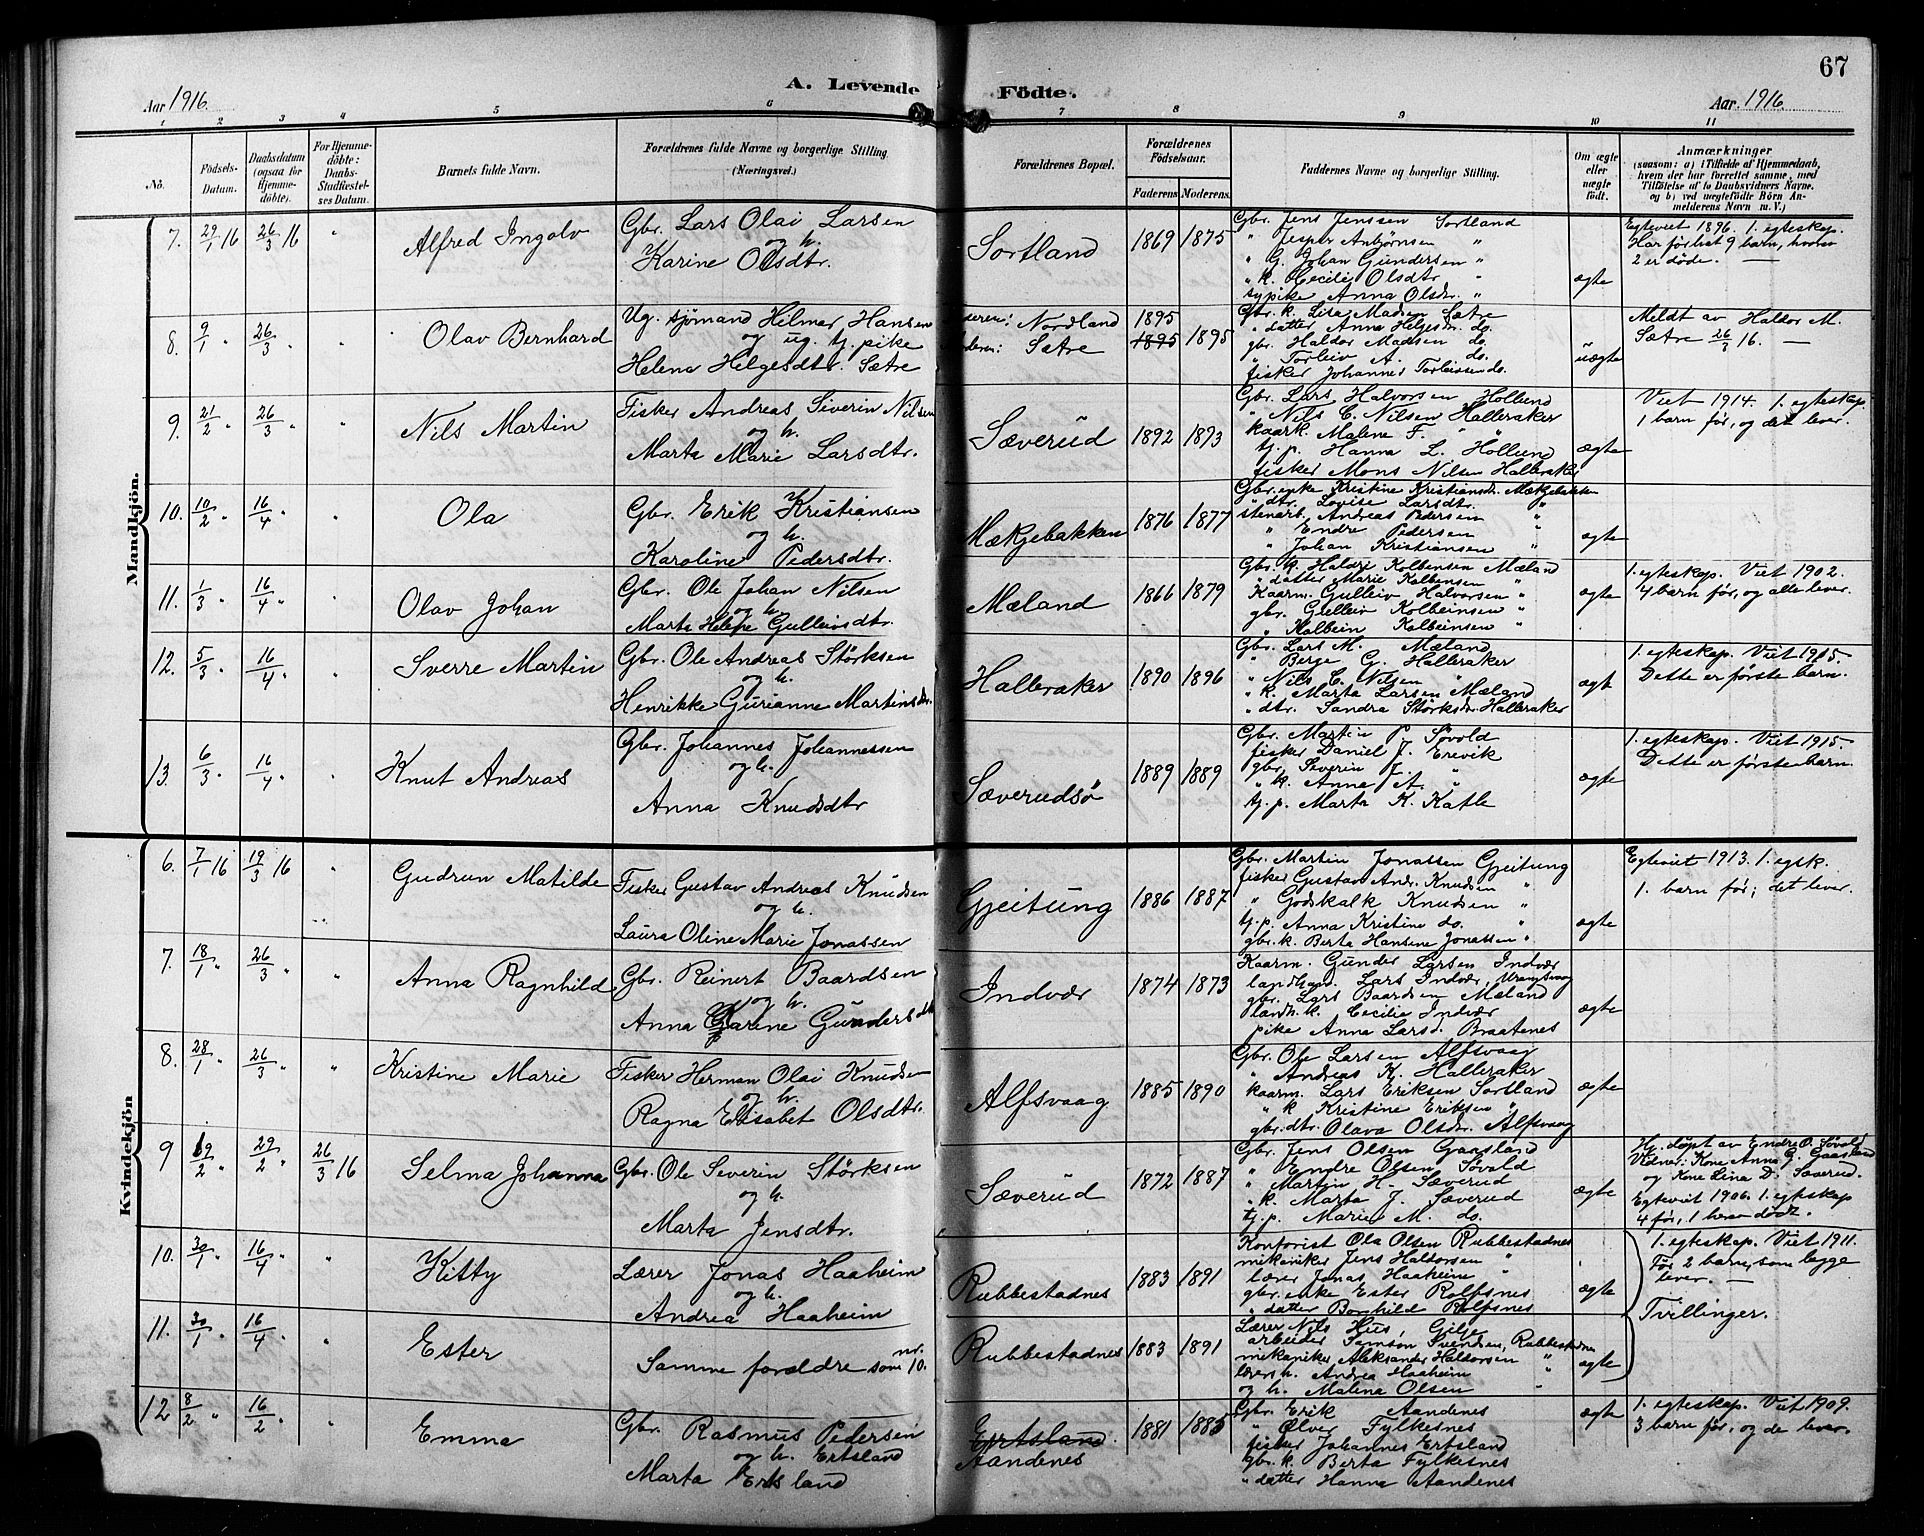 67
Aar 1916.
A. Levende Födte.
Aar. 1916.
1 2 3 4 5 6 7 8 9 10 11
No.
Födsels-Datum.
Daabsdatum (ogsaa for Hjemme-döbte).
For Hjemme-döbte: Daabs-Stadfæstel-ses Datum.
Barnets fulde Navn.
Forældrenes fulde Navne og borgerlige Stilling (Næringsvei.)
Forældrenes Bopæl.
Forældrenes Födselsaar.
Faderens. Moderens.
Faddernes Navne og borgerlige Stilling.
Om ægte eller uægte födt.
Anmærkninger
(saasom: a) i Tilfælde af Hjemmedaab, hvem der har forrettet samme, med Tilföielse af to Daabsvidners Navne, og b) ved uægtefödte Börn An-melderens Navn m. V.)
Mandkjön.
7. 29/1 16 26/3 16 " Alfred Ingolv
Gbr. Lars Olai Larsen
og h.
Karine Olsdtr.
Sortland 1869 1875
Gbr. Jens Jenssen Sortland
" Jesper Anbjørnsen "
" G. Johan Gundersen "
" k. Cecilie Olsdtr "
sypike Anna Olsdr. "
ægte
Egteviet 1896. 1. egteskap.
Har før hat 9 barn, hvorav
2 er døde. —
8. 9/1 " 26/3 " " Olav Bernhard
Ug. sjømand Hilmar Hansen
og ug. tj. pike
Helena Helgesdtr. Sætre
deren: Nordland
deren: Sætre
1895
1895 1895
Gbr. k. Lisa Madsen Sætre
" datter Anna Helgesdr. do.
gbr. Haldor Madsen do.
" Torleiv A. do.
fisker Johannes Torleivsen do.
uægte
Meldt av Haldor M.
Sætre 26/3 16. —
9. 21/2 " 26/3 " " Nils Martin
Fisker Andreas Siverin Nilsen
og h.
Marta Marie Larsdtr.
Sæverud 1892 1893
Gbr. Lars Halvorsen Hollund
" Nils C. Nilsen Halleraker
kaark. Malene F. " "
tj. p. Hanna L. Hollund
fisker Mons Nilsen Halleraker
ægte
Viet 1914. 1. egteskap.
1 barn før, og det lever.
10. 10/2 " 16/4 " " Ola
Gbr. Erik Kristiansen
og h.
Karoline Pedersdtr.
Mækjebakken 1876 1877
Gbr. enke Kristine Kristiansdr. Mækjebakken
" dtr. Lovise Larsdtr. "
stenarb. Andreas Pedersen "
" Endre Pedersen "
" Johan Kristiansen "
ægte
11. 1/3 " 16/4 " " Olav Johan
Gbr. Ole Johan Nilsen
og h.
Marta Helene Gulleivsdtr.
Mæland 1866 1879
Gbr. k. Haldri Kolbensen Mæland
" datter Marie Kolbensen "
Kaarm. Gulleiv Halvorsen "
gbr. Gulleiv Kolbeinsen "
" Kolbein Kolbeinsen "
ægte
1. egteskap. Viet 1902.
4 barn før, og alle lever.
12. 5/3 " 16/4 " " Sverre Martin
Gbr. Ole Andreas Størksen
og h.
Henrikke Gurianne Martinsdr.
Halleraker 1890 1896
Gbr. Lars M. Mæland
" Berge G. Halleraker
" Nils C. Nilsen "
" k. Marta Larsen Mæland
" dtr. Sandra Størksdr. Halleraker
ægt
1. egteskap. Viet 1915.
Dette er første barn.
13. 6/3 " 16/4 " Knut Andreas
Gbr. Johannes Johannessen
og h.
Anna Knudsdtr
Sæverudsø 1889 1889
Gbr. Martin P. Søvold
fisker Daniel J. Erevik
gbr. Severin J. "
" k. Anna A. "
tj. p. Marta K. Katle
ægte
1. egteskap. Viet 1915.
Dette er første barn.
Kvindekjön
6. 7/1 16 19/3 16 " Gudrun Matilde
Fisker Gustav Andreas Knudsen
og h.
Laura Oline Marie Jonassen
Gjeitung 1886 1887
Gbr. Martin Jonassen Gjeitung
fisker Gustav Andr. Knudsen "
" Godskalk Knudsen "
tj. p. Anna Kristine do. "
gbr. k. Berta Hansine Jonassen "
ægte
Egteviet 1913. 1. egsk.
1. barn før; det lever.
7. 18/1 " 26/3 " " Anna Ragnhild
Gbr. Reinert Baardsen
og h.
Anna Karine Gundersdtr
Indvær 1874 1873
Kaarm. Gunder Larsen Indvær
landhand. Lars Indvær, Vrangsvaag
gbr. Lars Baardsen Mæland
landh. k. Cecilie Indvær
pike Anna Larsd. Braatenes
ægte
8. 28/1 " 26/3 " " Kristine Marie
Fisker Herman Olai Knudsen
og h.
Ragna Elisabet Olsdtr.
Alfsvaag 1885 1890
Gbr. Ole Larsen Alfsvaag
" Andreas K. Halleraker
kaarm. Lars Eriksen Sortland
" k Kristine Eriksen "
gbr. dtr. Olava Olsdr. Alfsvaag
ægte
9 19/2 " 29/2 " 26/3 16 Selma Johanna
Gbr. Ole Severin Størksen
og h.
Marta Jensdtr.
Sæverud 1872 1887
Gbr. Jens Olsen Gaasland
" Endre Olsen Søvold
" Martin H. Sæverud
" k. Marta J. Sæverud
tj. p. Marie M. do.
ægte
Hj. døpt av Endre O. Søvold
Vidner: Kone Anna G. Gaasland
og Kone Lina D. Sæverud.
Egteviet 1906. 1. egteskap
4 før, 1 herav dødt.
10. 30/1 " 16/4 " " Kitty
Lærer Jonas Haaheim
og h.
Andrea Haaheim
Rubbestadnes 1883 1891
Kontorist Ola Olsen Rubbestadnes
mekaniker Jens Haldorsen "
lærer Jonas Haaheim "
gbr. enke Ester Rolfsnes
" datter Borghild Rolfsnes
ægte
1. egteskap. Viet 1911.
Før 2 barn, som begge
lever. —
Tvillinger.
11. 30/1 " 16/4 " " Ester
Samme forældre som nr. 10.
Rubbestadnes 1883 1891
Lærer Nils Hus, Gilje
arbeider Samson Svendsen, Rubbestadnes
mekaniker Aleksander Haldorsen "
lærersh. Andrea Haaheim "
og h. Malena Olsen "
ægte
12 8/2 " 16/2 " " Emma
Gbr. Rasmus Pedersen
og h. Ertsland
Marta Ertsland
Ertsland.
Aandenes
1881 1885
Gbr. Erik Aandenes
" Ølver Fylkesnes
fisker Johannes Ertsland
Gbr. k. Berta Fylkesnes
" datter Hanna Aandenes
ægte
1. egteskap. Viet 1909.
3 barn før, og de lever.